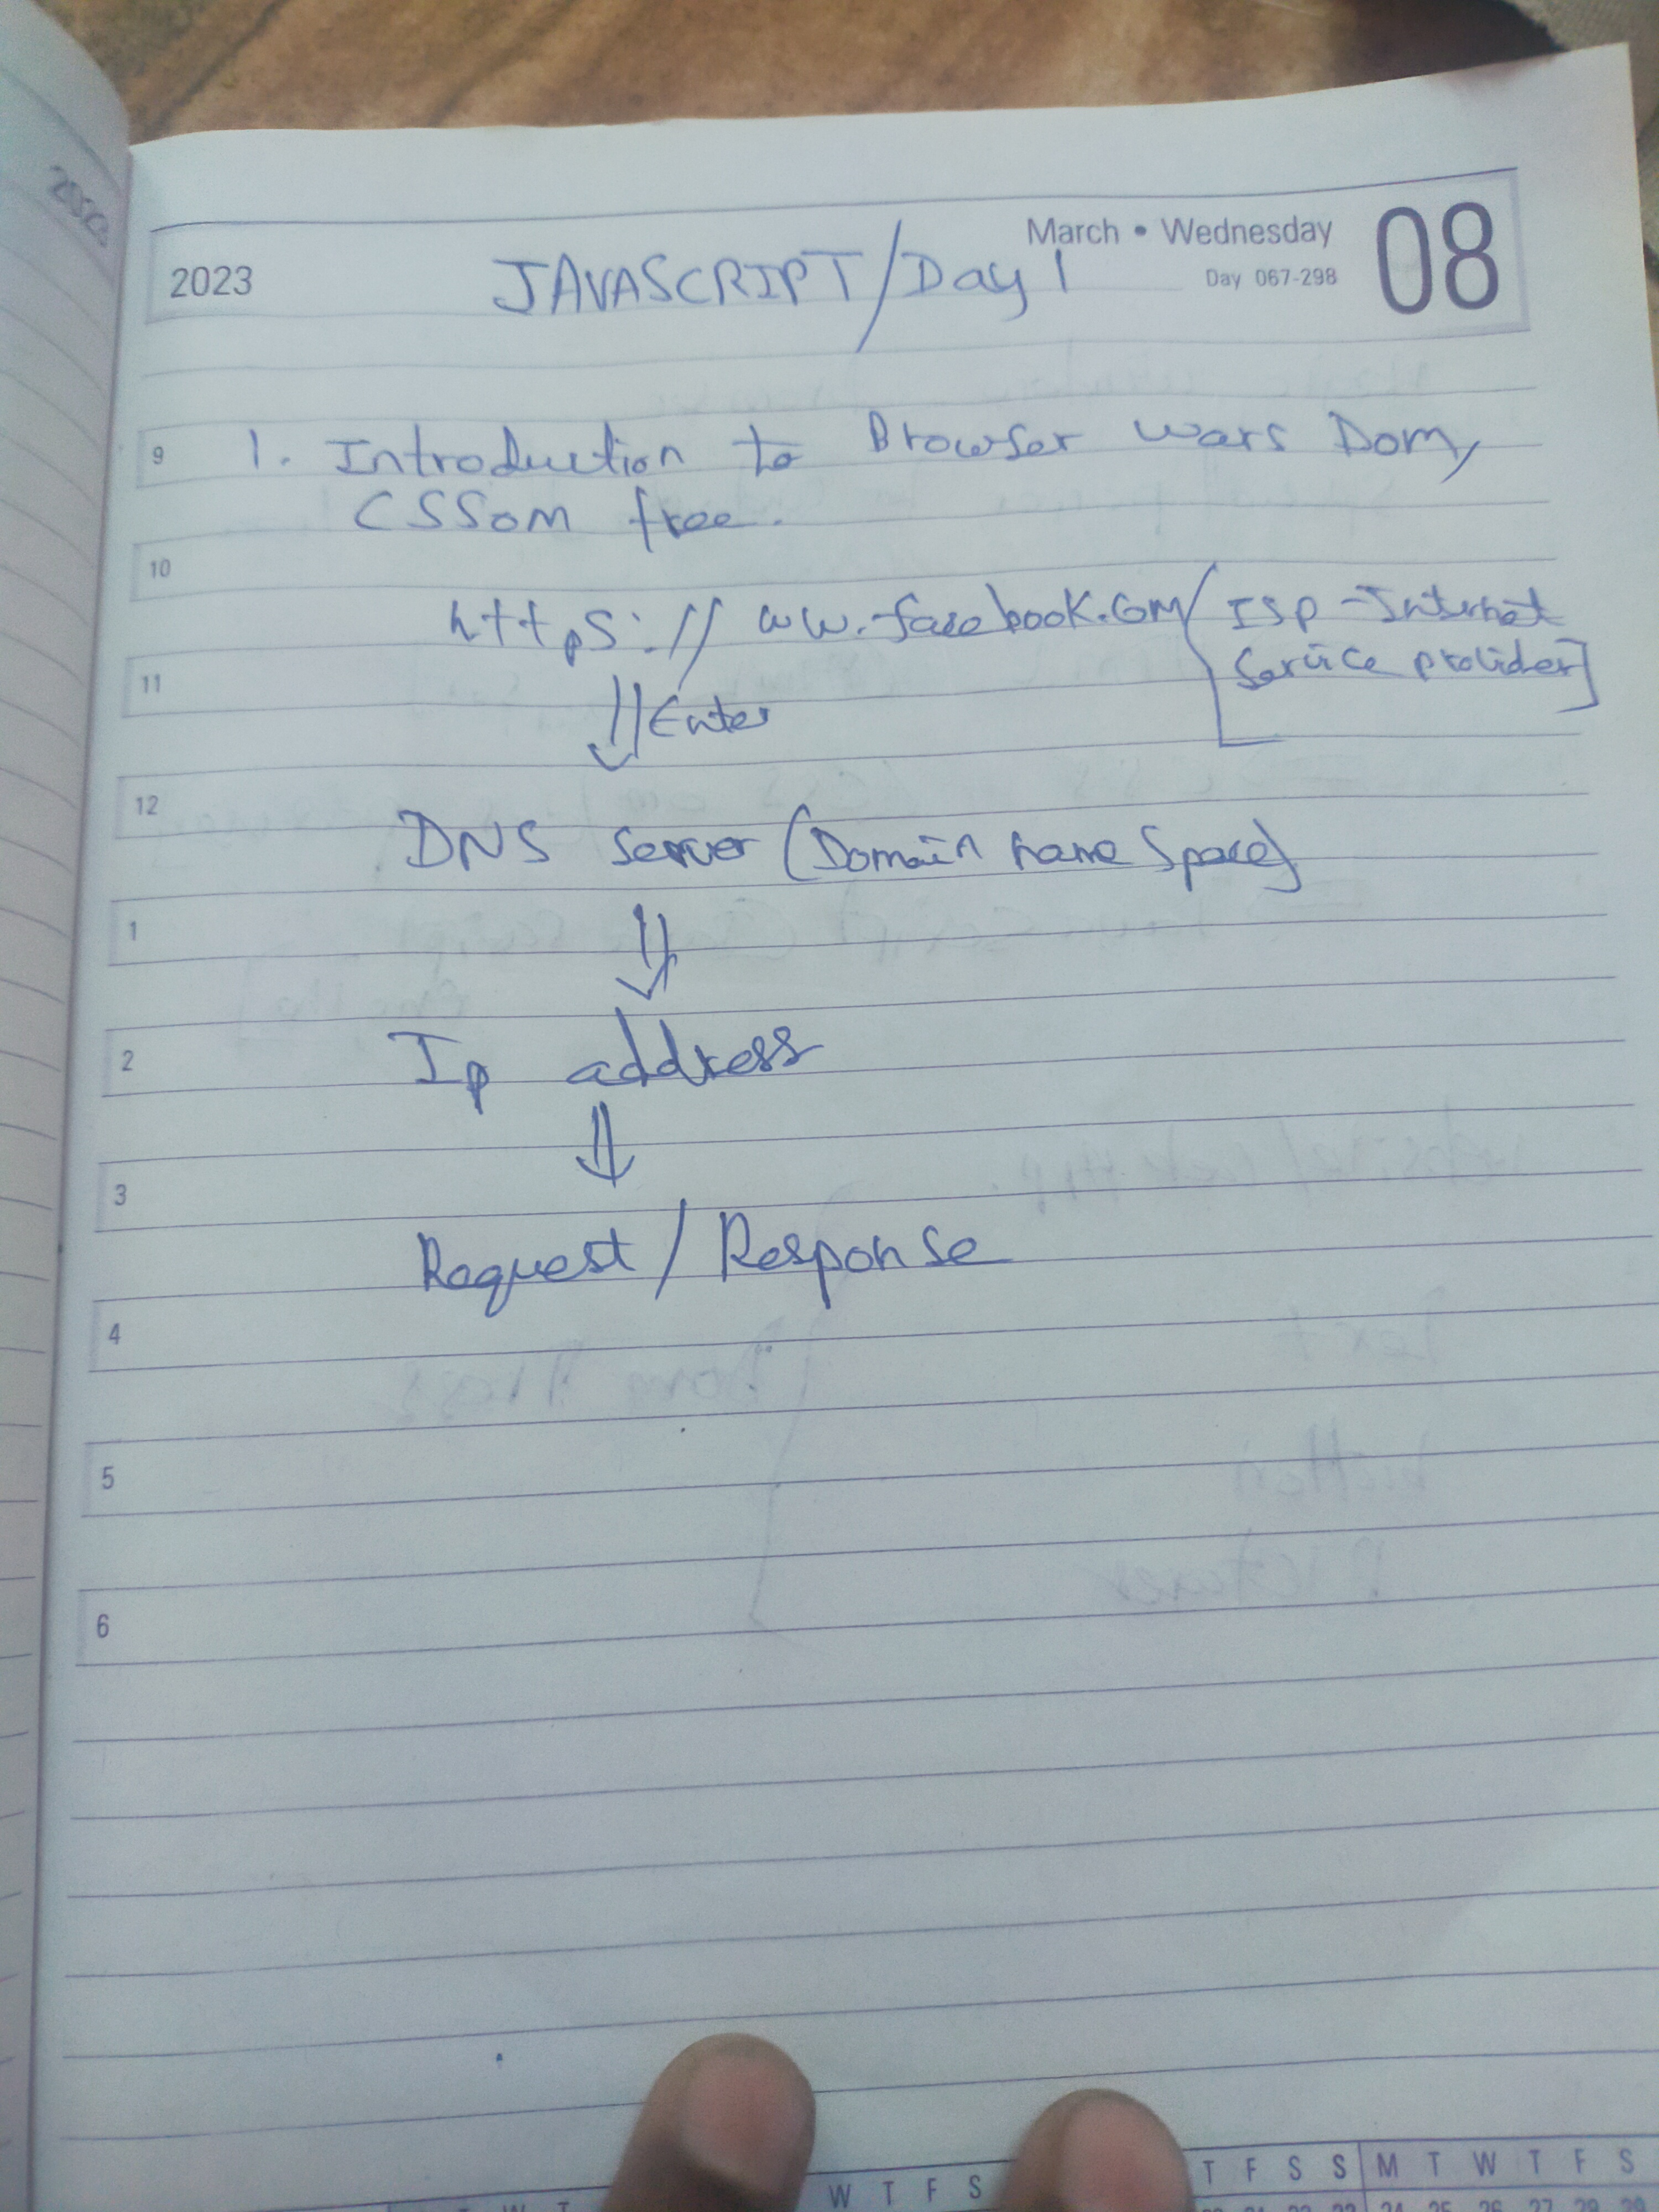 2023
March • Wednesday
08
Day 067-298
JAVASCRIPT/Day 1
9
1. Introduction to Browser wars Dom,
CSSOM free.
10
https://ww.facebook.com/ [ISP - Internet
Service provider]
11
Enter
12
DNS Server (Domain name Space)
1
2
Ip address
3
Request / Response
4
5
6
W T F S
T F S S M T W T F S